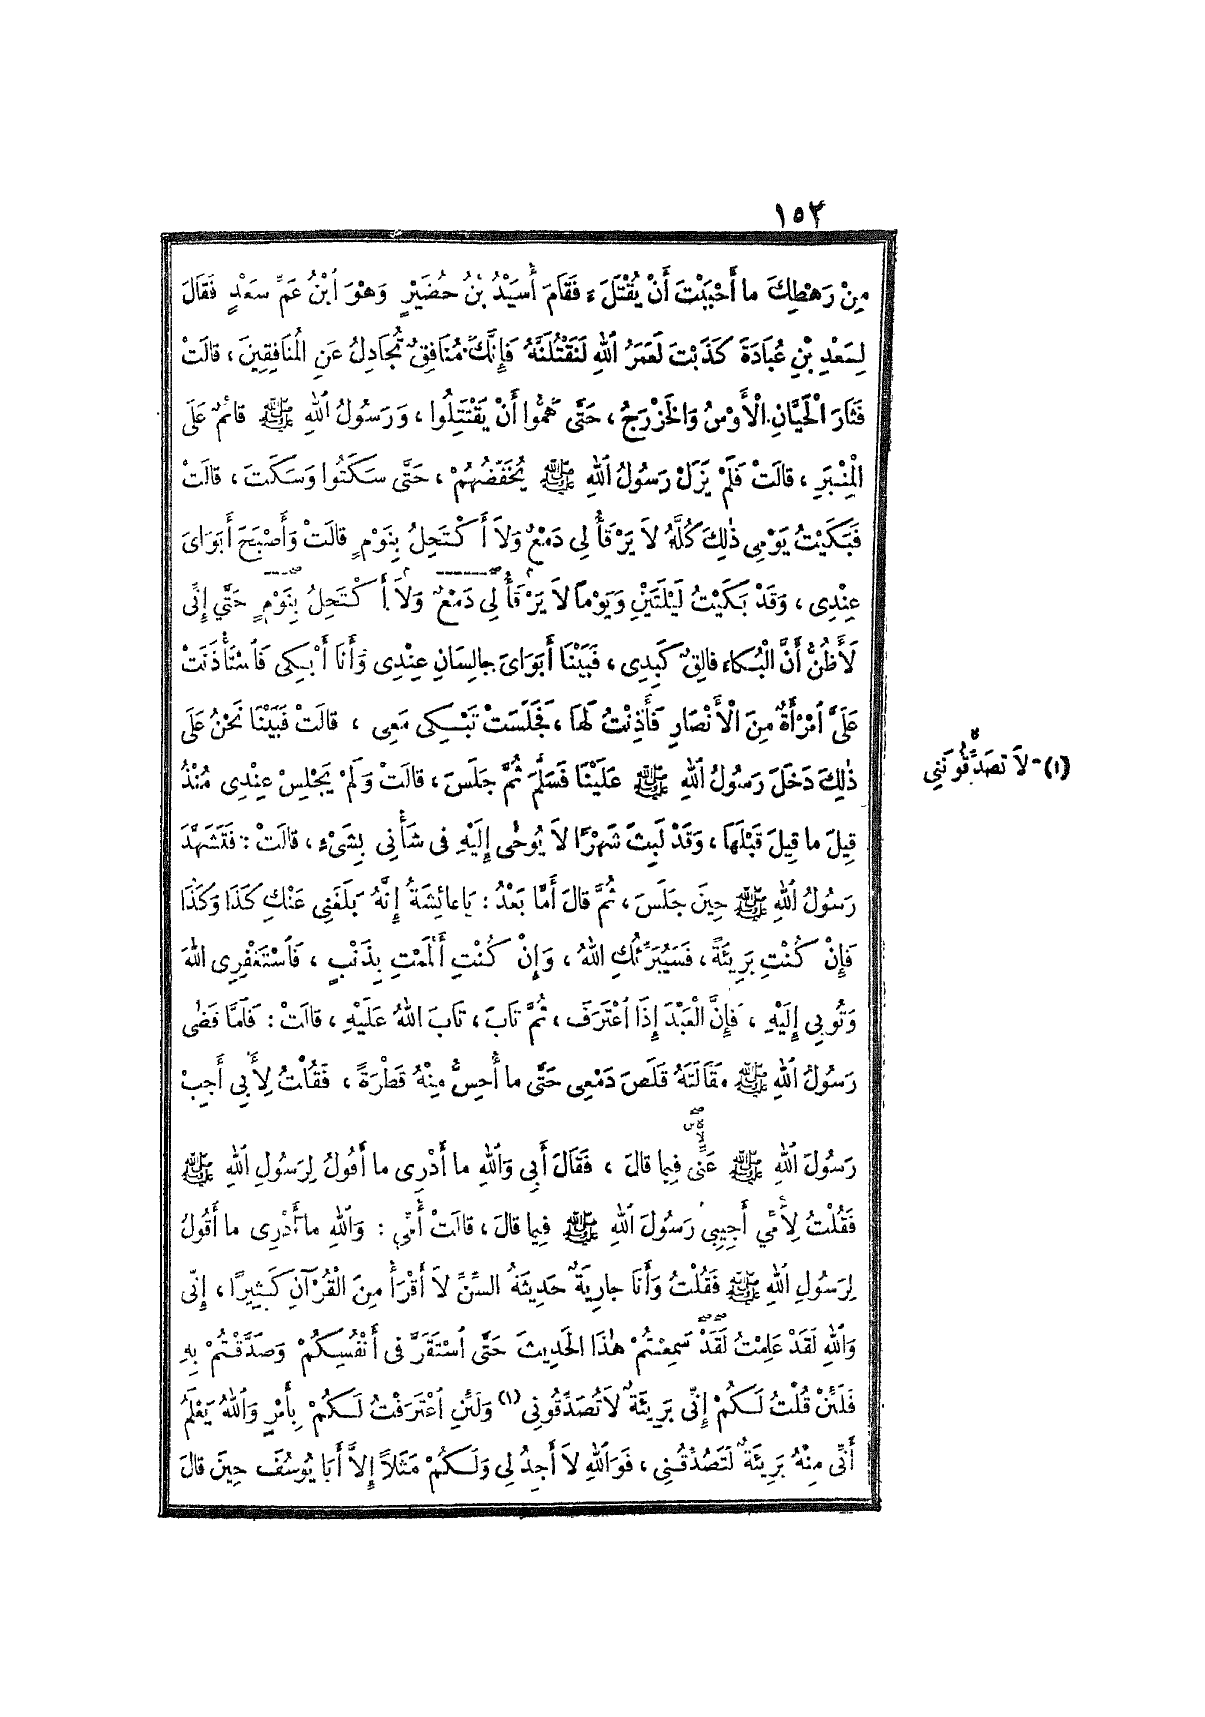 ١٥٣
مِنْ رَهْطِكَ ما أَحْبَبْتَ أَنْ يُقْتَلَ ، فَقَامَ أُسَيْدُ بْنُ حُضَيْرٍ وَهْوَ ابْنُ عَمِّ سَعْدٍ فَقَالَ
لِسَعْدِ بْنِ عُبَادَةَ كَذَبْتَ لَعَمْرُ اللهِ لَنَقْتُلَنَّهُ فَإِنَّكَ مُنَافِقٌ تُجَادِلُ عَنِ الْمُنَافِقِينَ ، قالَتْ
فَثَارَ الْحَيَّانِ الْأَوْسُ وَالْخَزْرَجُ ، حَتَّى هَمُّوا أَنْ يَقْتَتِلُوا ، وَرَسُولُ اللهِ ﷺ قائمٌ عَلَى
الْمِنْبَرِ ، قالَتْ فَلَمْ يَزَلْ رَسُولُ اللهِ ﷺ يُخَفِّضُهُمْ ، حَتَّى سَكَتُوا وَسَكَتَ ، قالَتْ
فَبَكَيْتُ يَوْمِى ذٰلِكَ كُلَّهُ لاَ يَرْقَأُ لِى دَمْعٌ وَلاَ أَكْتَحِلُ بِنَوْمٍ قالَتْ وَأَصْبَحَ أَبَوَاىَ
عِنْدِى ، وَقَدْ بَكَيْتُ لَيْلَتَيْنِ وَيَوْمًا لاَ يَرْقَأُ لِى دَمْعٌ وَلاَ أَكْتَحِلُ بِنَوْمٍ حَتَّى إِنِّى
لَأَظُنُّ أَنَّ الْبُكاءَ فالِقٌ كَبِدِى ، فَبَيْنَا أَبَوَاىَ جالِسَانِ عِنْدِى وَأَنَا أَبْكِى فَاسْتَأْذَنَتْ
عَلَىَّ امْرَأَةٌ مِنَ الْأَنْصَارِ فَأَذِنْتُ لَهَا ، فَجَلَسَتْ تَبْكِى مَعِى ، قالَتْ فَبَيْنَا نَحْنُ عَلَى
ذٰلِكَ دَخَلَ رَسُولُ اللهِ ﷺ عَلَيْنَا فَسَلَّمَ ثُمَّ جَلَسَ ، قالَتْ وَلَمْ يَجْلِسْ عِنْدِى مُنْذُ
(١) لاَ تُصَدِّقُونَنِى
قِيلَ ما قِيلَ قَبْلَهَا ، وَقَدْ لَبِثَ شَهْرًا لاَ يُوحٰى إِلَيْهِ فى شَأْنِى بِشَىْءٍ ، قالَتْ : فَتَشَهَّدَ
رَسُولُ اللهِ ﷺ حِينَ جَلَسَ ، ثُمَّ قالَ أَمَّا بَعْدُ : يَا عائِشَةُ إِنَّهُ بَلَغَنِى عَنْكِ كَذَا وَكَذَا
فَإِنْ كُنْتِ بَرِيئَةً ، فَسَيُبَرِّئُكِ اللهُ ، وَإِنْ كُنْتِ أَلْمَمْتِ بِذَنْبٍ ، فَاسْتَغْفِرِى اللهَ
وَتُوبِى إِلَيْهِ ، فَإِنَّ الْعَبْدَ إِذَا اعْتَرَفَ ، ثُمَّ تَابَ ، تَابَ اللهُ عَلَيْهِ ، قالَتْ : فَلَمَّا قَضٰى
رَسُولُ اللهِ ﷺ مَقَالَتَهُ قَلَصَ دَمْعِى حَتَّى ما أُحِسُّ مِنْهُ قَطْرَةً ، فَقُلْتُ لِأَبِى أَجِبْ
رَسُولَ اللهِ ﷺ عَنِّى فِيما قالَ ، فَقَالَ أَبِى وَاللهِ ما أَدْرِى ما أَقُولُ لِرَسُولِ اللهِ ﷺ
فَقُلْتُ لِأُمِّى أَجِيبِى رَسُولَ اللهِ ﷺ فِيما قالَ ، قالَتْ أُمِّى : وَاللهِ ما أَدْرِى ما أَقُولُ
لِرَسُولِ اللهِ ﷺ فَقُلْتُ وَأَنَا جارِيَةٌ حَدِيثَةُ السِّنِّ لاَ أَقْرَأُ مِنَ الْقُرْآنِ كَثِيرًا ، إِنِّى
وَاللهِ لَقَدْ عَلِمْتُ لَقَدْ سَمِعْتُمْ هٰذَا الْحَدِيثَ حَتَّى اسْتَقَرَّ فى أَنْفُسِكُمْ وَصَدَّقْتُمْ بِهِ
فَلَئِنْ قُلْتُ لَكُمْ إِنِّى بَرِيئَةٌ لاَ تُصَدِّقُونِى (١) وَلَئِنِ اعْتَرَفْتُ لَكُمْ بِأَمْرٍ وَاللهُ يَعْلَمُ
أَنِّى مِنْهُ بَرِيئَةٌ لَتُصَدِّقُنِى ، فَوَاللهِ لاَ أَجِدُ لِى وَلَكُمْ مَثَلاً إِلاَّ أَبَا يُوسُفَ حِينَ قالَ